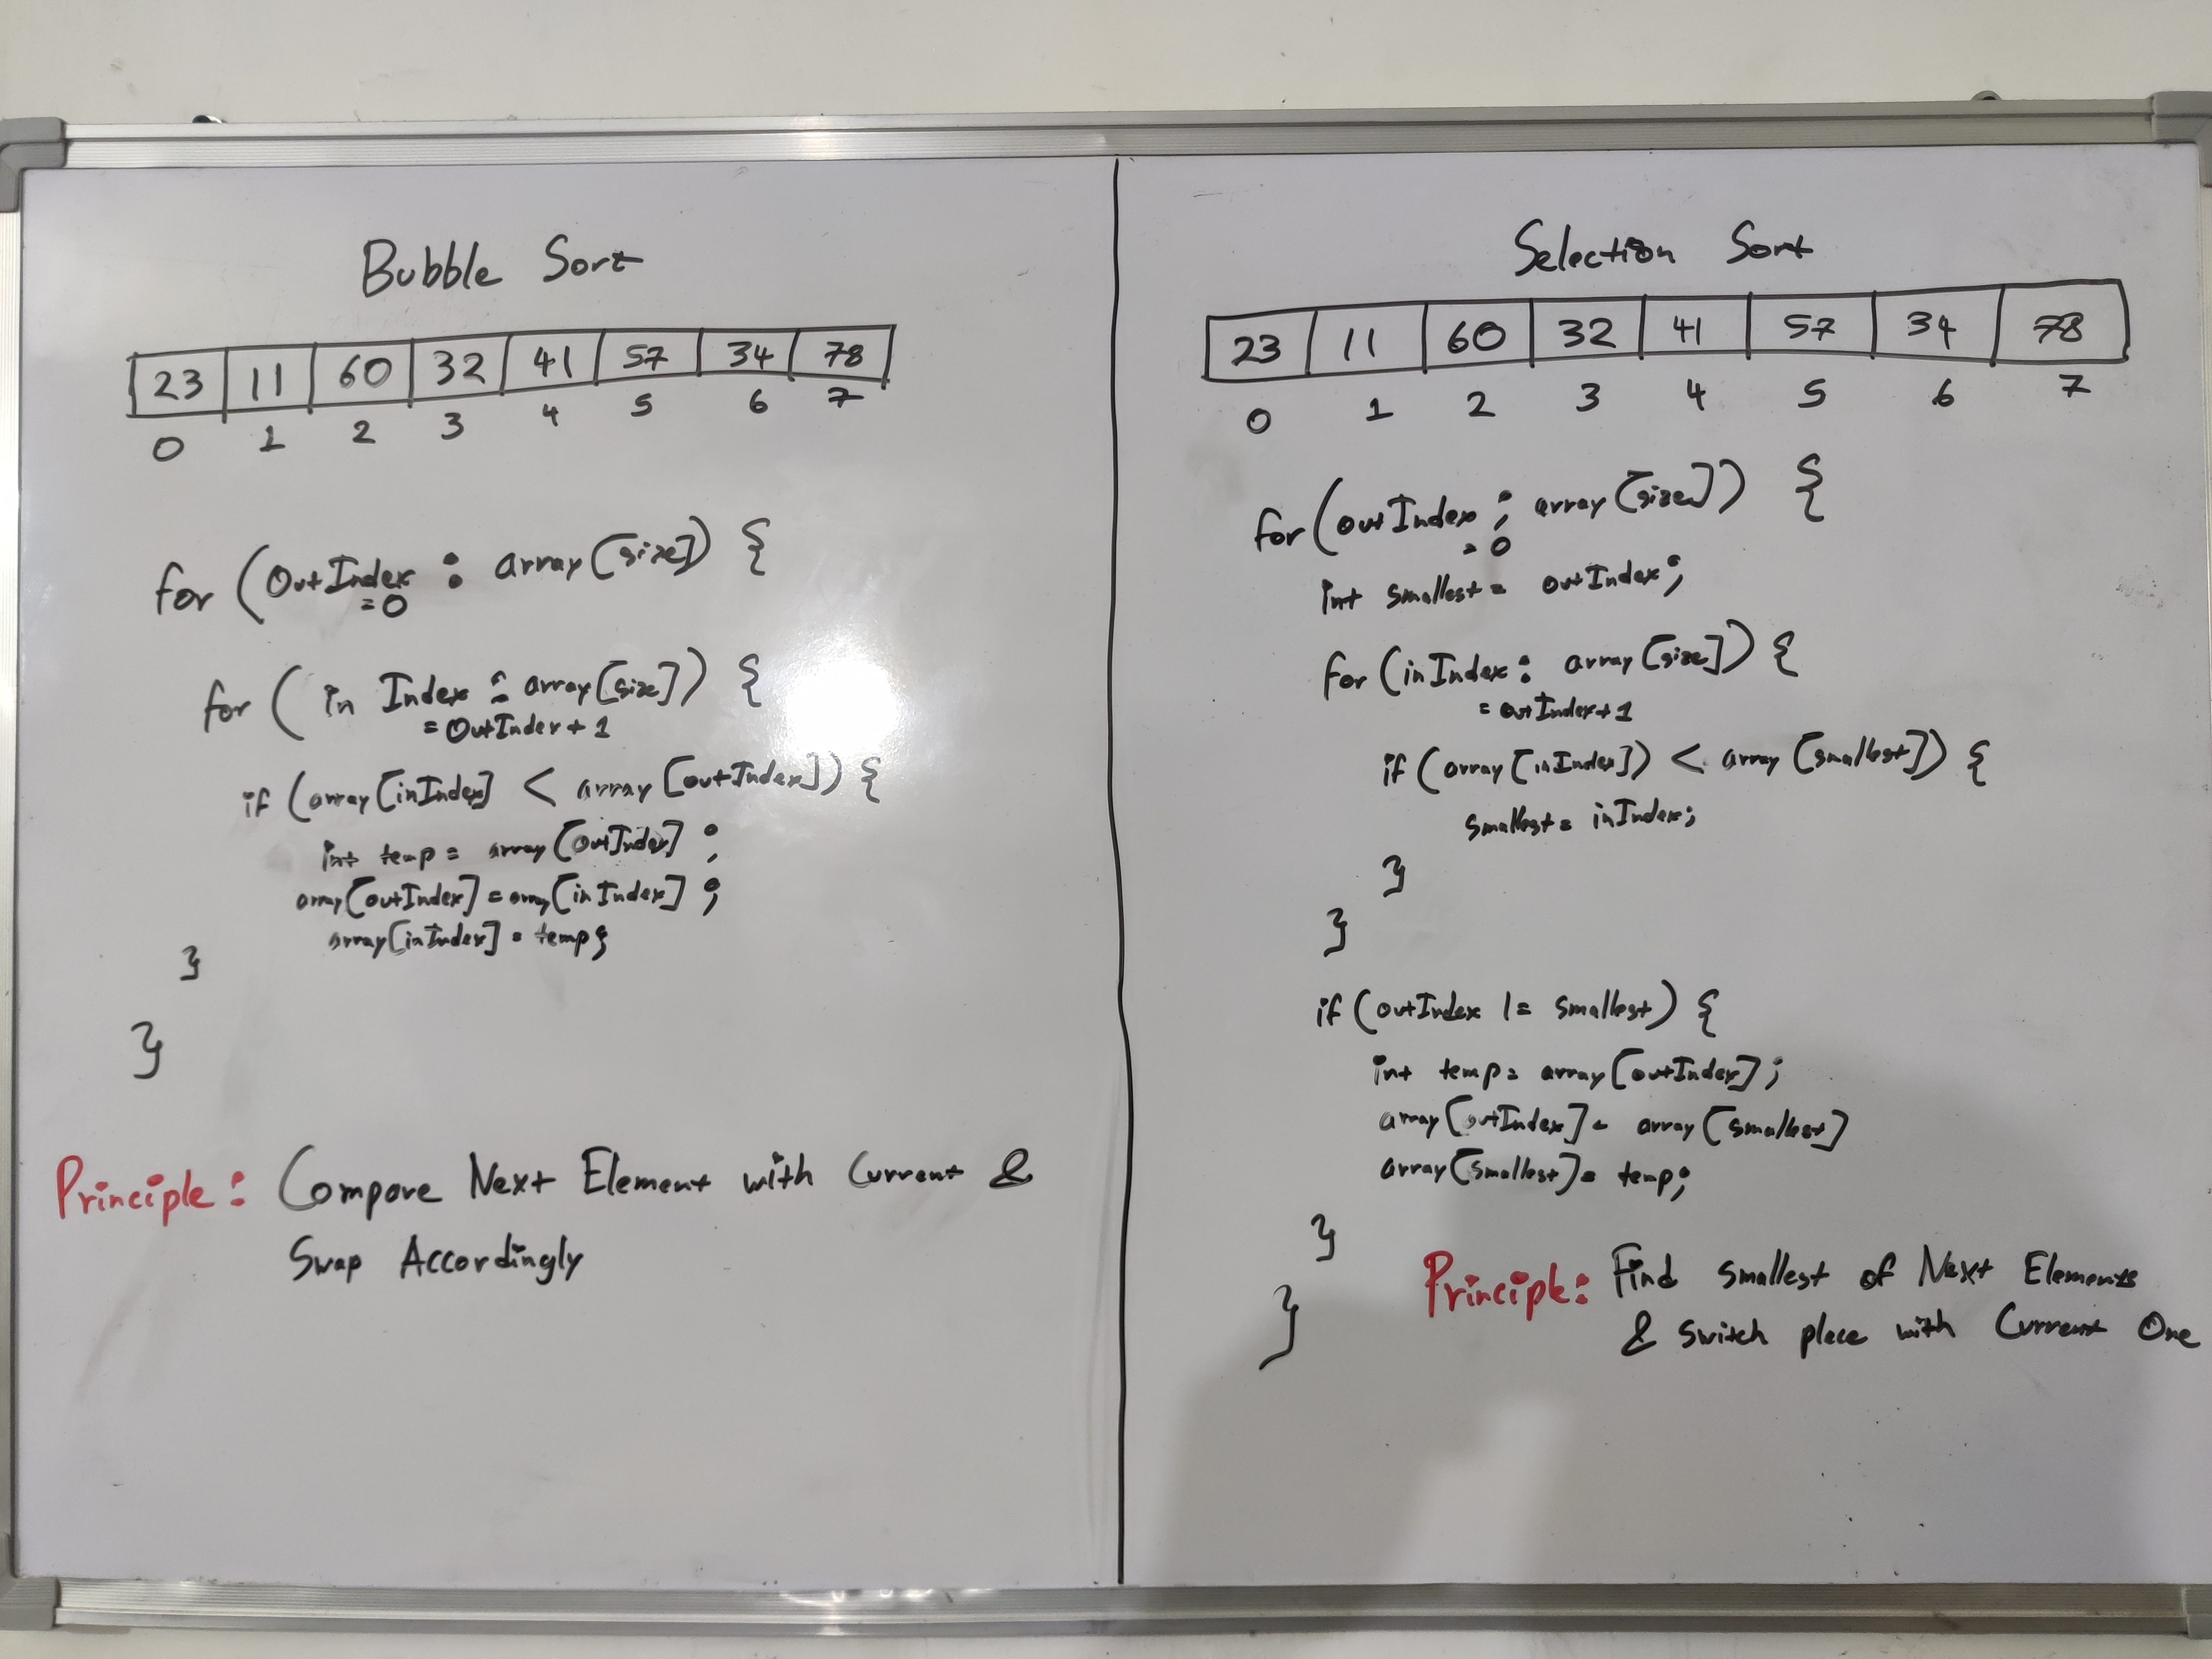 Bubble Sort
23 11 60 32 41 57 34 78
0 1 2 3 4 5 6 7
for (OutIndex : array[size]) {
=0
for ( in Index : array[size]) {
= OutIndex + 1
if (array[inIndex] < array[outIndex]) {
int temp = array[OutIndex] ;
array[outIndex] = array[inIndex] ;
array[inIndex] = temp;
}
}
Principle: Compare Next Element with Current &
Swap Accordingly
Selection Sort
23 11 60 32 41 57 34 78
0 1 2 3 4 5 6 7
for (outIndex ; array[size]) {
= 0
int smallest = outIndex;
for (inIndex : array[size]) {
= outIndex+1
if (array[inIndex]) < array[smallest]) {
smallest = inIndex;
}
}
if (outIndex != smallest) {
int temp = array[outIndex];
array[outIndex] = array[smallest]
array[smallest] = temp;
}
}
Principle: Find smallest of Next Elements
& switch place with Current One